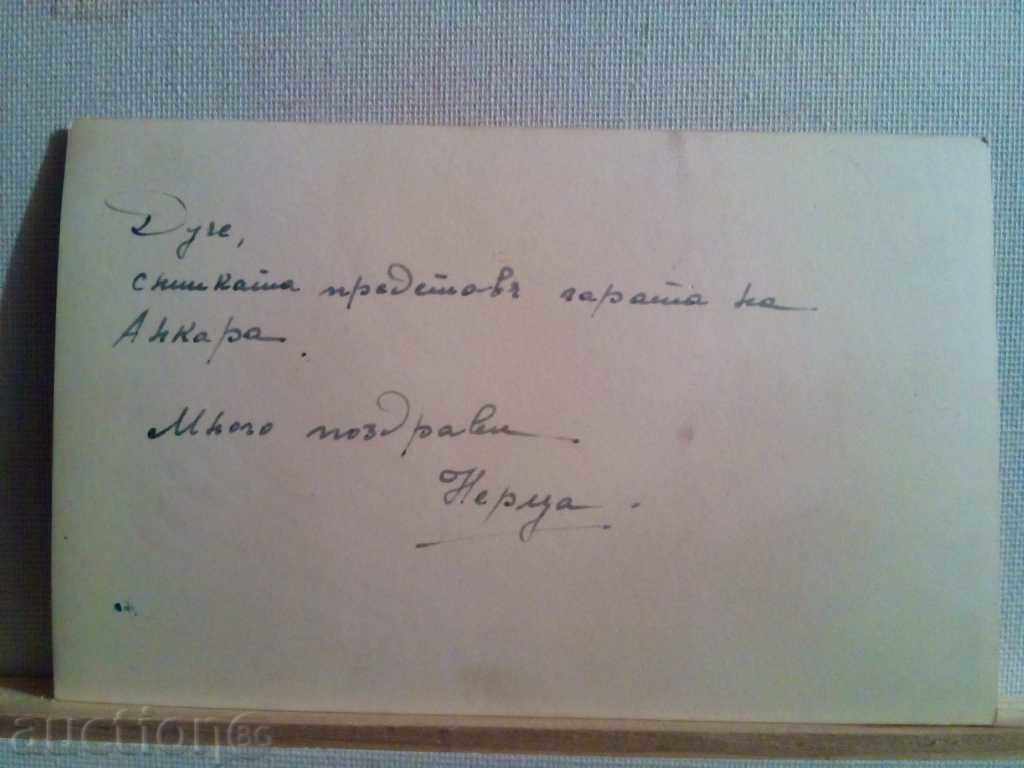 Дуче,
снимката представя гарата на
Анкара.
Много поздрави
Нерца.
auction bg